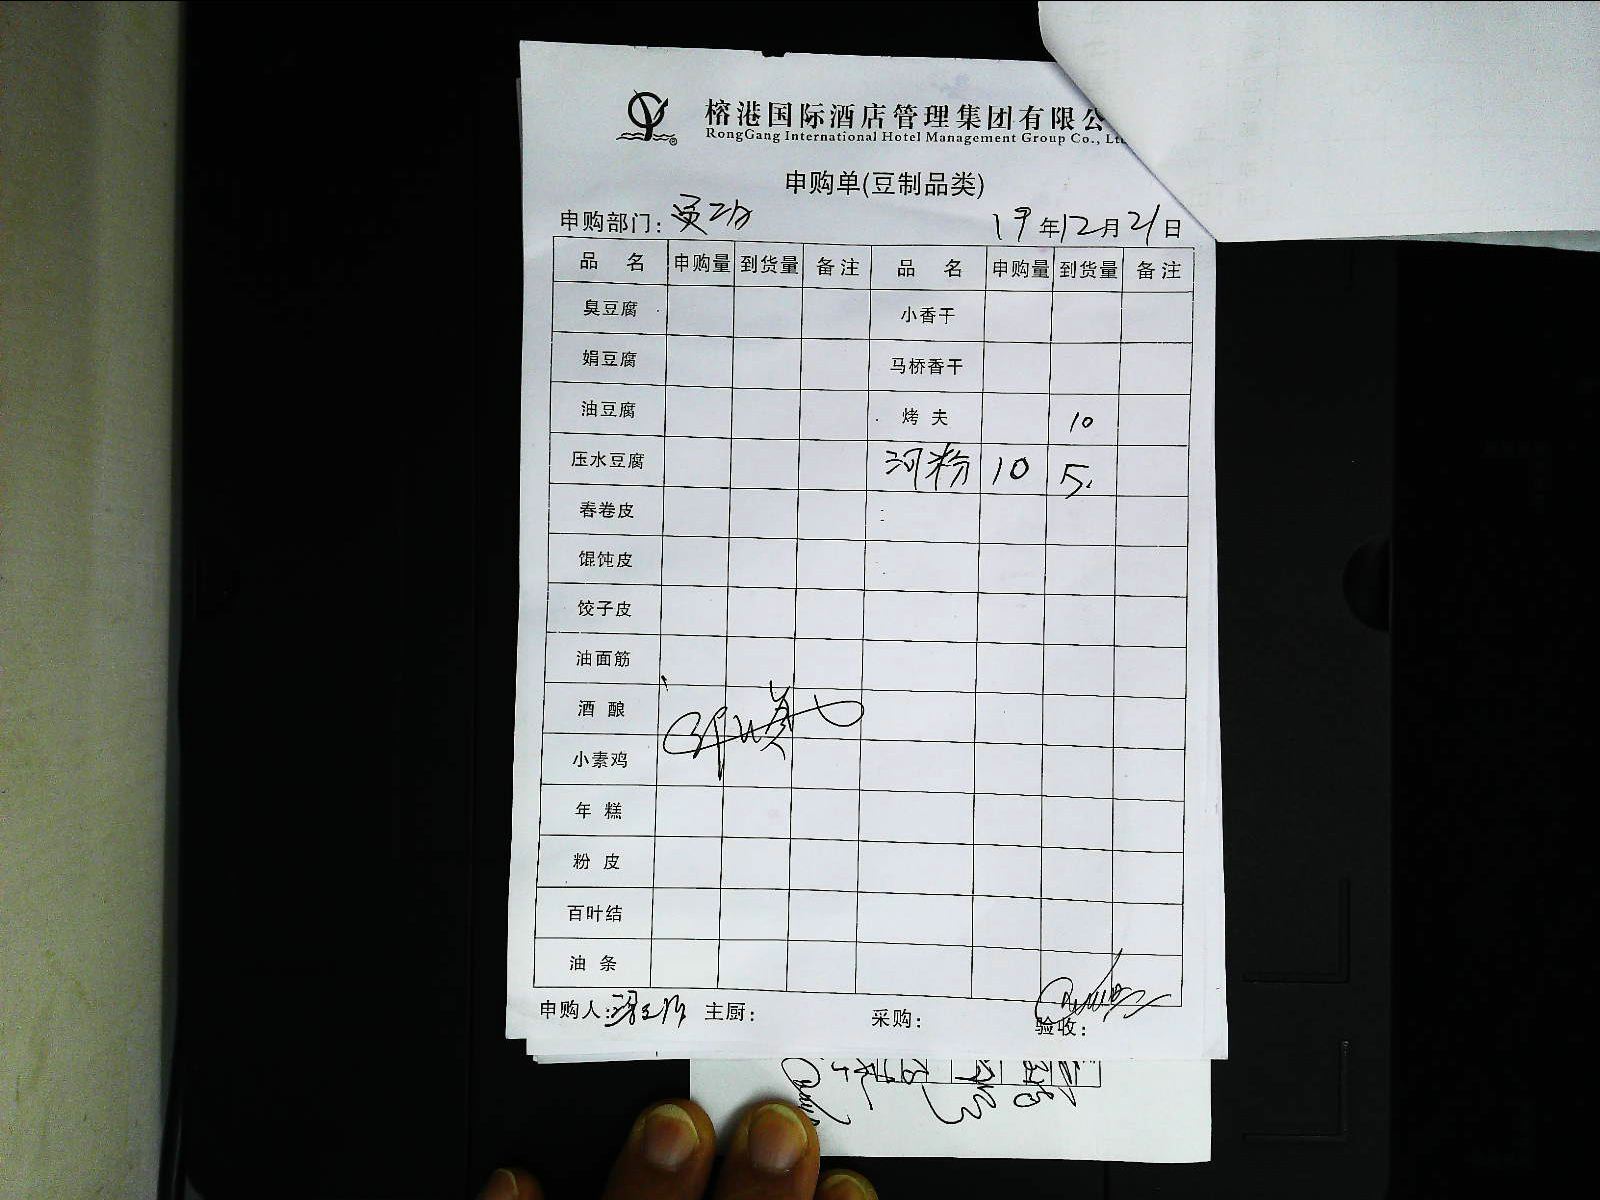 榕港国际酒店管理集团有限公
RongGang International Hotel Management Group Co., Lt
申购单(豆制品类)
申购部门: 19年12月21日
品 名 申购量 到货量 备注 品 名 申购量 到货量 备注
臭豆腐 小香干
娟豆腐 马桥香干
油豆腐 烤夫 10
压水豆腐 河粉 10 5.
春卷皮
馄饨皮
饺子皮
油面筋
酒酿
小素鸡
年糕
粉皮
百叶结
油条
申购人: 主厨: 采购: 验收: